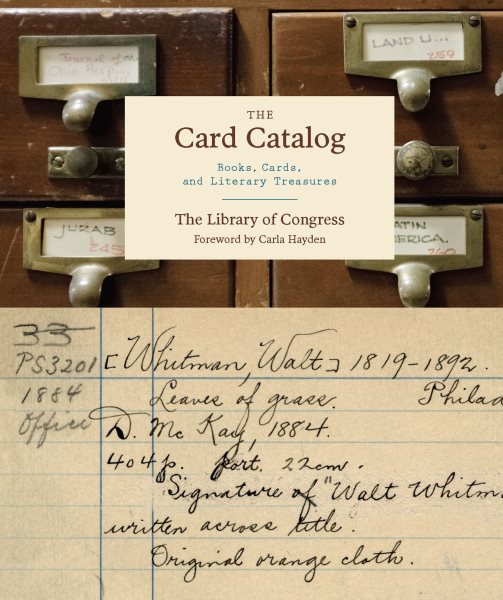 LAND U...
257
THE
Card Catalog
Books, Cards,
and Literary Treasures
The Library of Congress
Foreword by Carla Hayden
JURAB
245
ATIN
ERICA.
33
PS3201
1884
Office
[Whitman, Walt] 1819-1892.
Leaves of grass. Philad
D. McKay, 1884.
404p. port. 22cm.
"Signature of "Walt Whitm
written across title.
Original orange cloth.